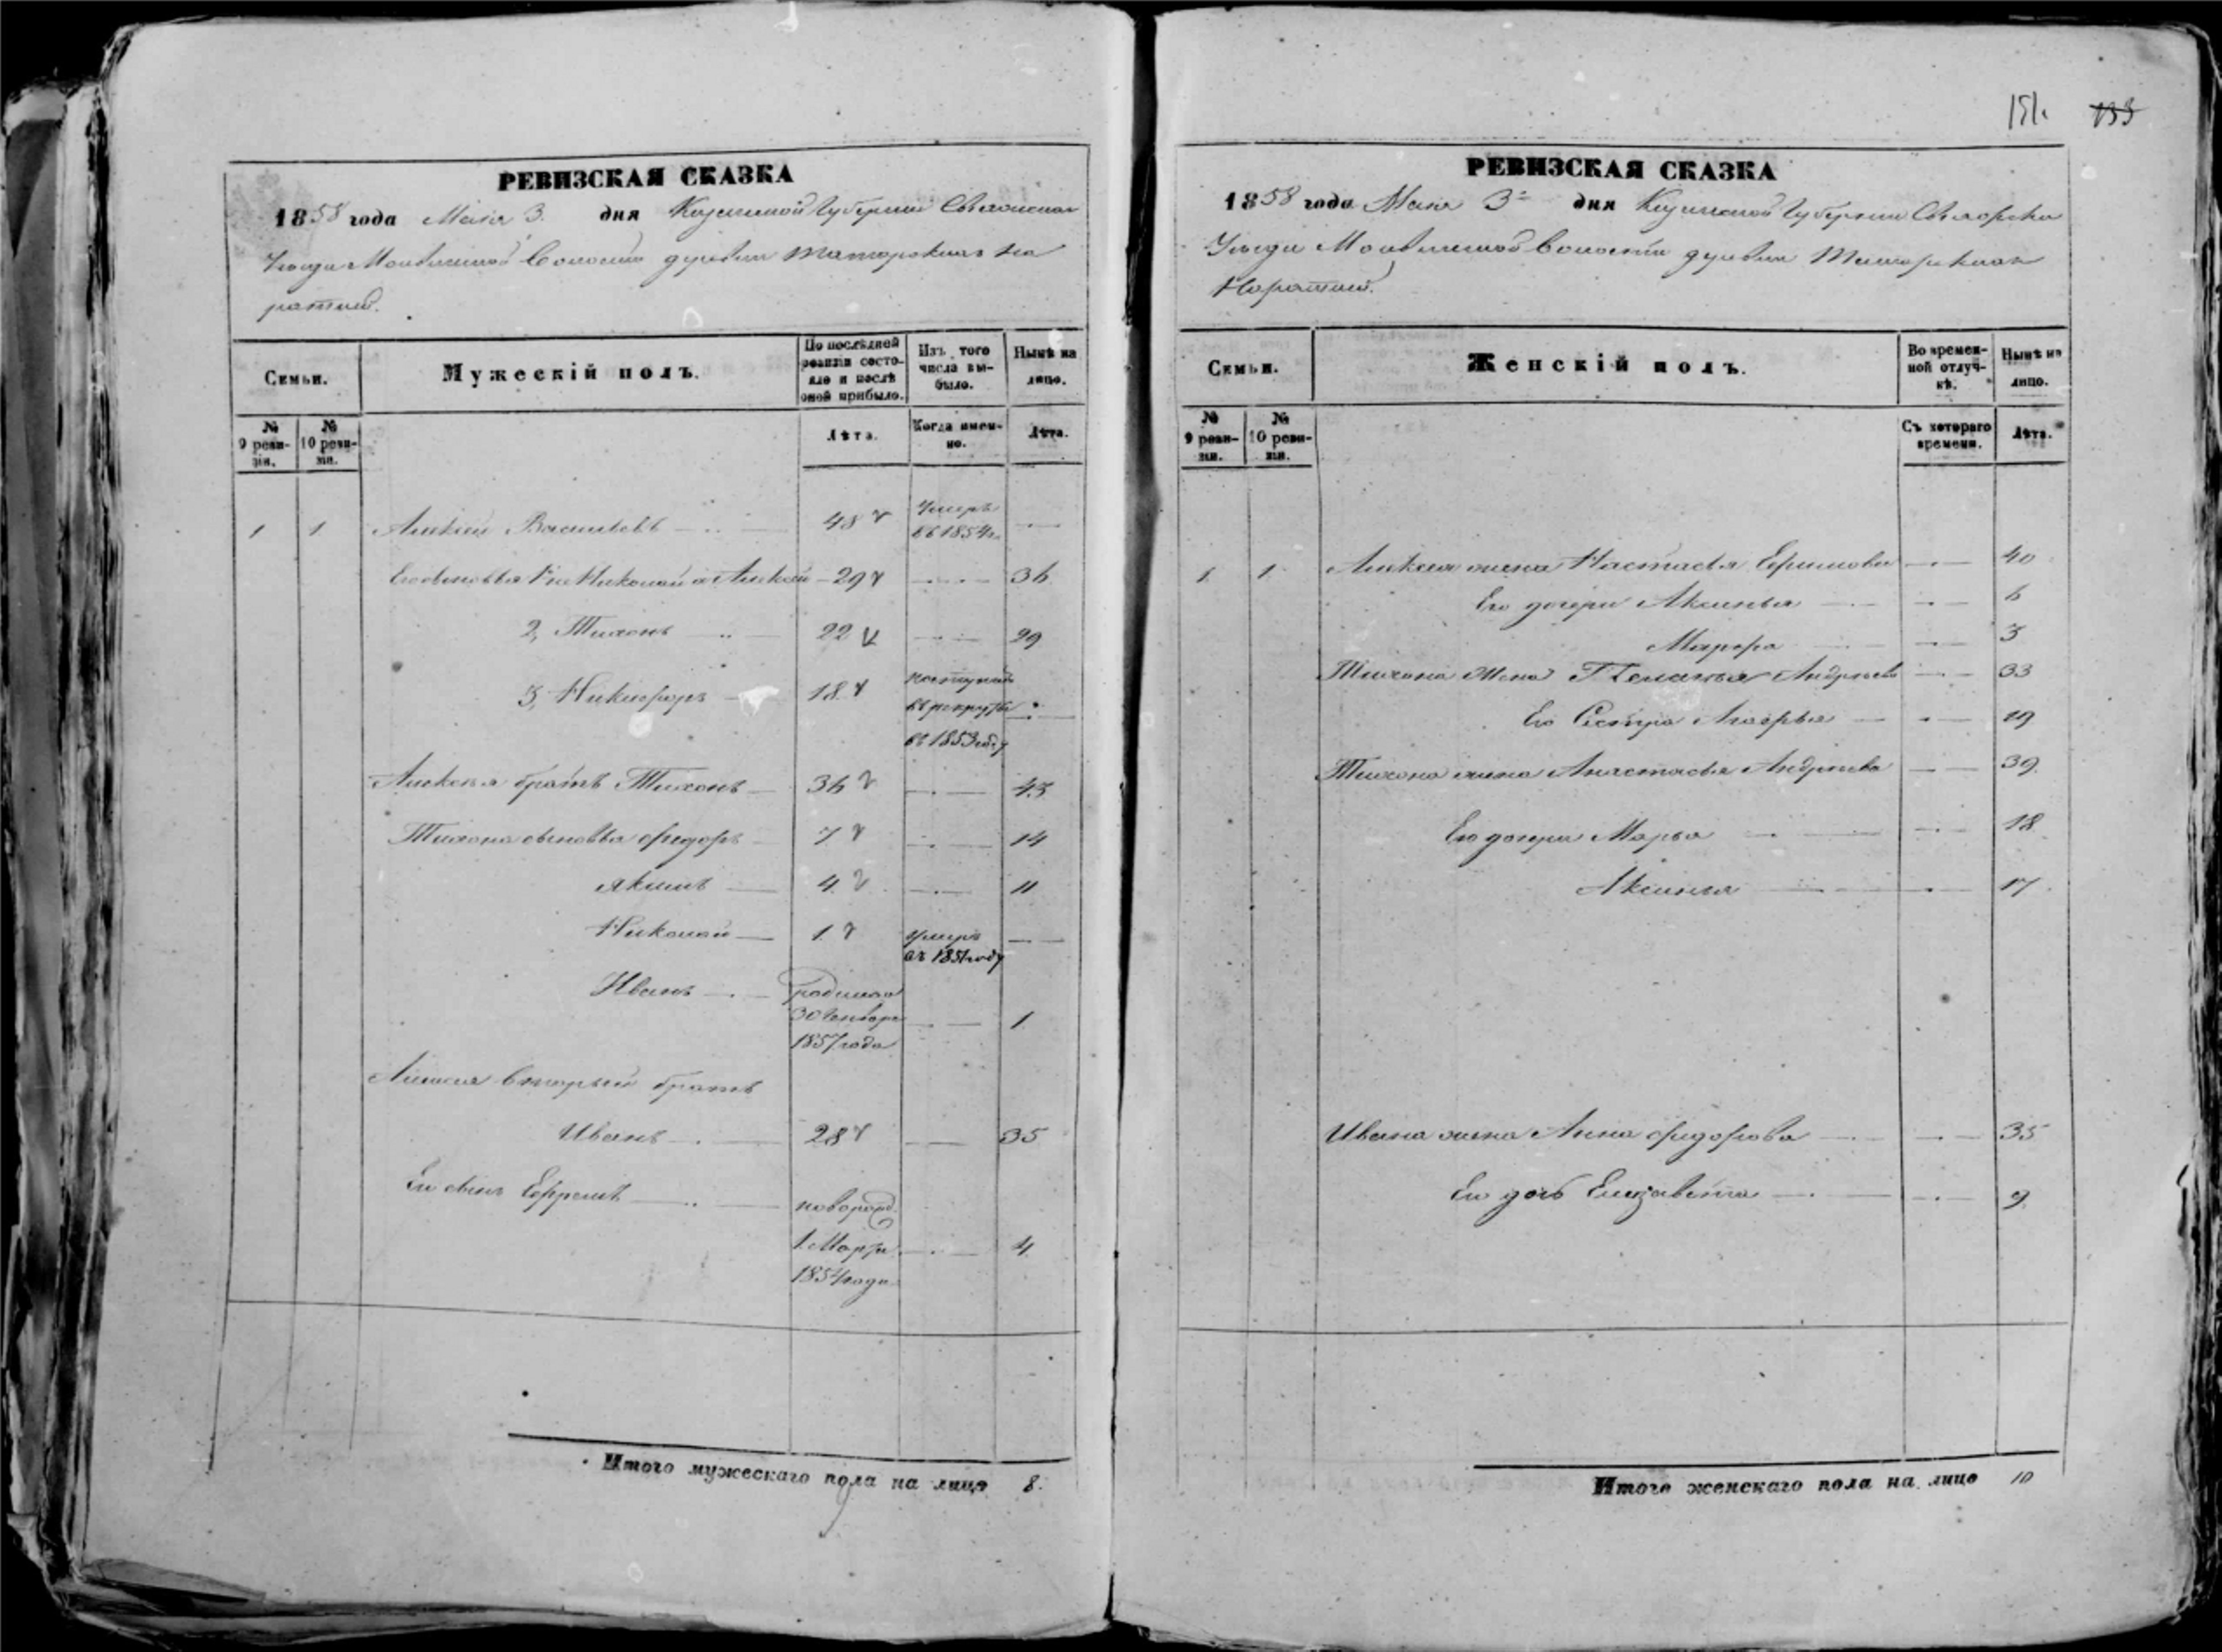 151. 133
РЕВИЗСКАЯ СКАЗКА
1858 года Мая 3. дня Казанской Губерніи Свіяжскаго
Уезда Молвинской Волости деревни Татарскихъ На
ратлей.
Семьи.
Мужескій полъ.
По послѣдней ревизіи состояло и послѣ оной прибыло.
Изъ того числа выбыло.
Нынѣ на лицо.
№ 9 ревизіи.
№ 10 ревизіи.
Лѣта.
Когда именно.
Лѣта.
1 1 Алексѣй Васильевъ 48 Умеръ въ 1854 г.
Его сыновья 1й Николай а Алексѣй 29 36
2, Тихонъ 22 29
3, Никифоръ 18. поступилъ въ рекруты въ 1853 году
Алексѣя братъ Тихонъ 36 43
Тихона сыновья Федоръ 7 14
Якимъ 4. 11
Николай 1. умеръ въ 1851 году
Иванъ родился 30 Генваря 1857 года 1
Алексѣя вторый братъ
Иванъ 28 35
Его сынъ Ефремъ новорожд. 1. Марта 1854 года 4
Итого мужескаго пола на лицо 8.
РЕВИЗСКАЯ СКАЗКА
1858 года Мая 3 дня Казанской Губерніи Свіяжска
Уезда Молвинской Волости деревни Татарскихъ
Наратлей.
Семьи.
Женскій полъ.
Во временной отлучкѣ.
Нынѣ на лицо.
№ 9 ревизіи.
№ 10 ревизіи.
Съ котораго времени.
Лѣта.
1. 1 Алексея жена Настасья Ефимова 40
Его дочери Аксинья 6
Марфа 3
Тихона жена Пелагья Андреева 33
Его Сестра Агафья 19
Тихона жена Анастасья Андреева 39.
Его дочери Марья 18.
Аксинья 17.
Ивана жена Анна Федорова 35
Его дочь Елизавета 9
Итого женскаго пола на лицо 10